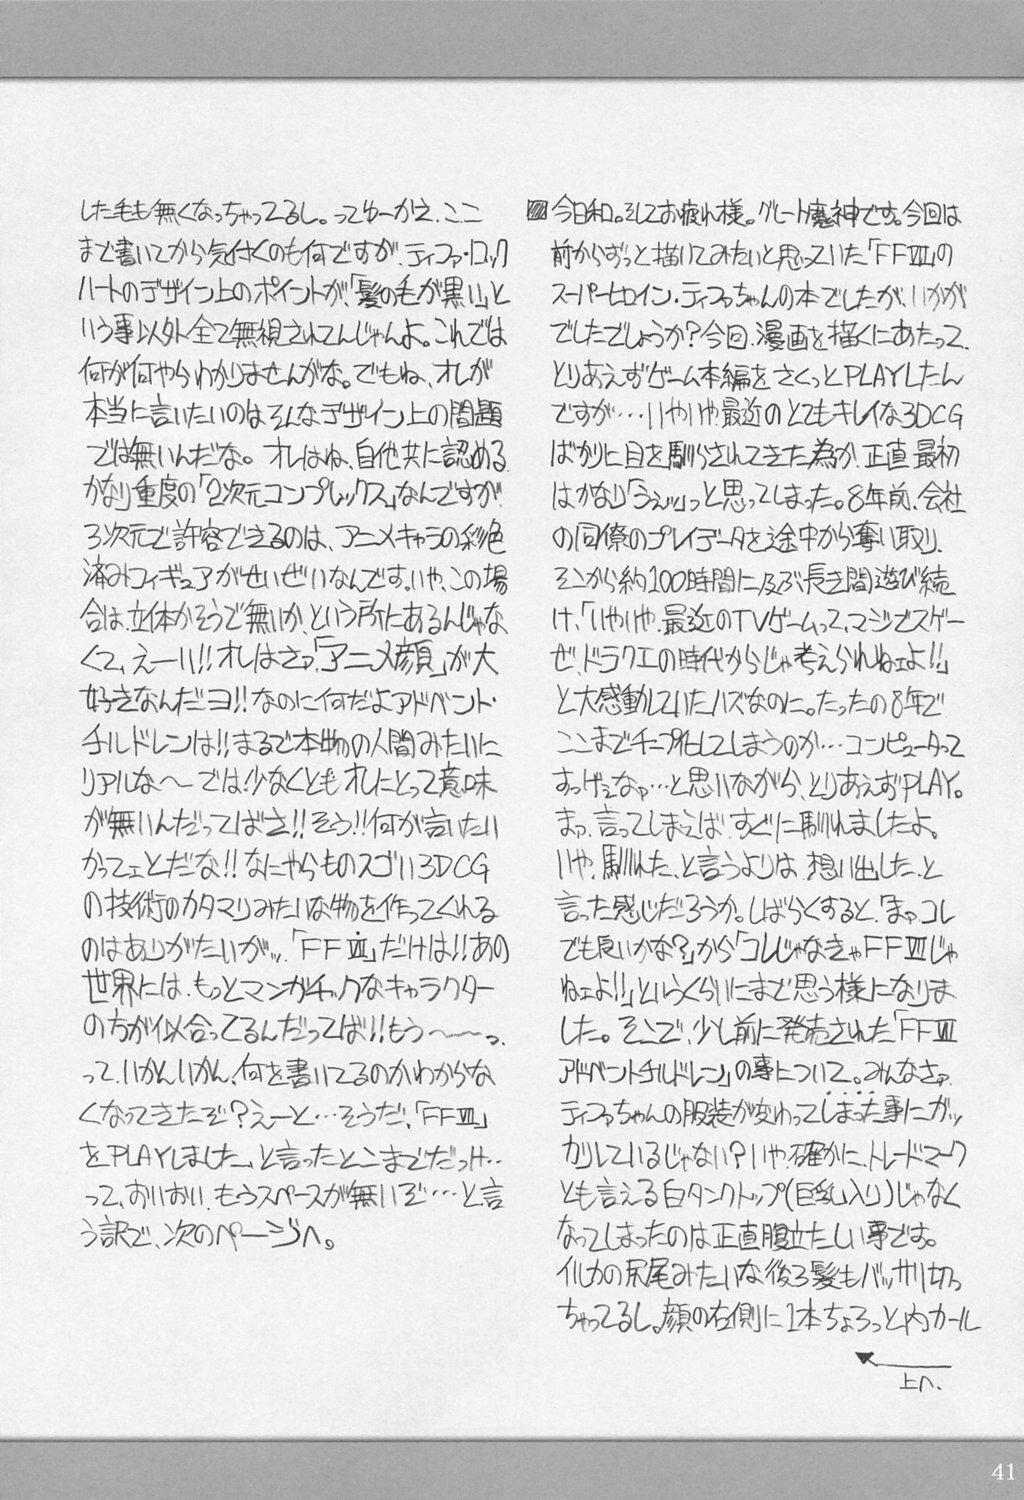 今日和。そしてお疲れ様。グレート魔神です。今回は
前からずっと描いてみたいと思っていた「FFⅦ」の
スーパーヒロイン・ティファちゃんの本でしたが、いかが
でしたでしょうか?今回、漫画を描くにあたって、
とりあえずゲーム本編をさくっとPLAYしたん
ですが…いやいや、最近のとてもキレイな3DCG
ばかりに目を馴らされてきた為か、正直、最初
はかなり「うえッ」っと思ってしまった。8年前、会社
の同僚のプレイデータを途中から奪い取り、
そこから約100時間に及ぶ長き間遊び続
け、「いやいや、最近のTVゲームって、マジでスゲー
ぜ、ドラクエの時代からじゃ考えられねェよ!!」
と大感動していたハズなのに。たったの8年で
ここまでチープ化してしまうのか…コンピュータって
すっげェなァ…と思いながら、とりあえずPLAY。
まァ、言ってしまえば、すぐに馴れましたよ。
いや、馴れた、と言うよりは、想い出した、と
言った感じだろうか。しばらくすると、「まァコレ
でも良いかな?」から「コレじゃなきゃFFⅦじゃ
ねェよ!!」というくらいにまで思う様になりま
した。そこで、少し前に発売された「FFⅦ
アドベントチルドレン」の事について。みんなさァ、
ティファちゃんの服装が変わってしまった事にガッ
カリしているじゃない?いや、確かに、トレードマーク
とも言える白タンクトップ(巨乳入り)じゃなく
なってしまったのは正直腹立たしい事です。
イルカの尻尾みたいな後ろ髪もバッサリ切っ
ちゃってるし。顔の右側に1本ちょろっと内カール
上へ、
した毛も無くなっちゃってるし。ってゆーかえ、ここ
まで書いてから気付くのも何ですが、ティファ・ロック
ハートのデザイン上のポイントが、「髪の毛が黒い」と
いう事以外全て無視されてんじゃんよ。これでは
何が何やらわかりませんがな。でもね、オレが
本当に言いたいのはそんなデザイン上の問題
では無いんだな。オレはね、自他共に認める、
かなり重度の「2次元コンプレックス」なんですが、
3次元で許容できるのは、アニメキャラの彩色
済みフィギュアがせいぜいなんです。いや、この場
合は、立体かそうで無いか、という所にあるんじゃな
くて、えーい!!オレはさァ、「アニメ顔」が大
好きなんだヨ!!なのに何だよアドベント・
チルドレンは!!まるで本物の人間みたいに
リアルな〜では!少なくともオレにとって意味
が無いんだってばさ!!そう!!何が言いたい
かってェとだな!!なにやらものスゴい3DCG
の技術のカタマリみたいな物を作ってくれる
のはありがたいがッ、「FFⅦ」だけは!!あの
世界には、もっとマンガチックなキャラクター
の方が似合ってるんだってば!!もう〜〜っ、
って、いかんいかん、何を書いてるのかわからな
くなってきたぞ?えーと…そうだ、「FFⅦ」
をPLAYしました、と言ったとこまでだっけ…
って、おいおい、もうスペースが無いぞ…と言
う訳で、次のページへ。
41